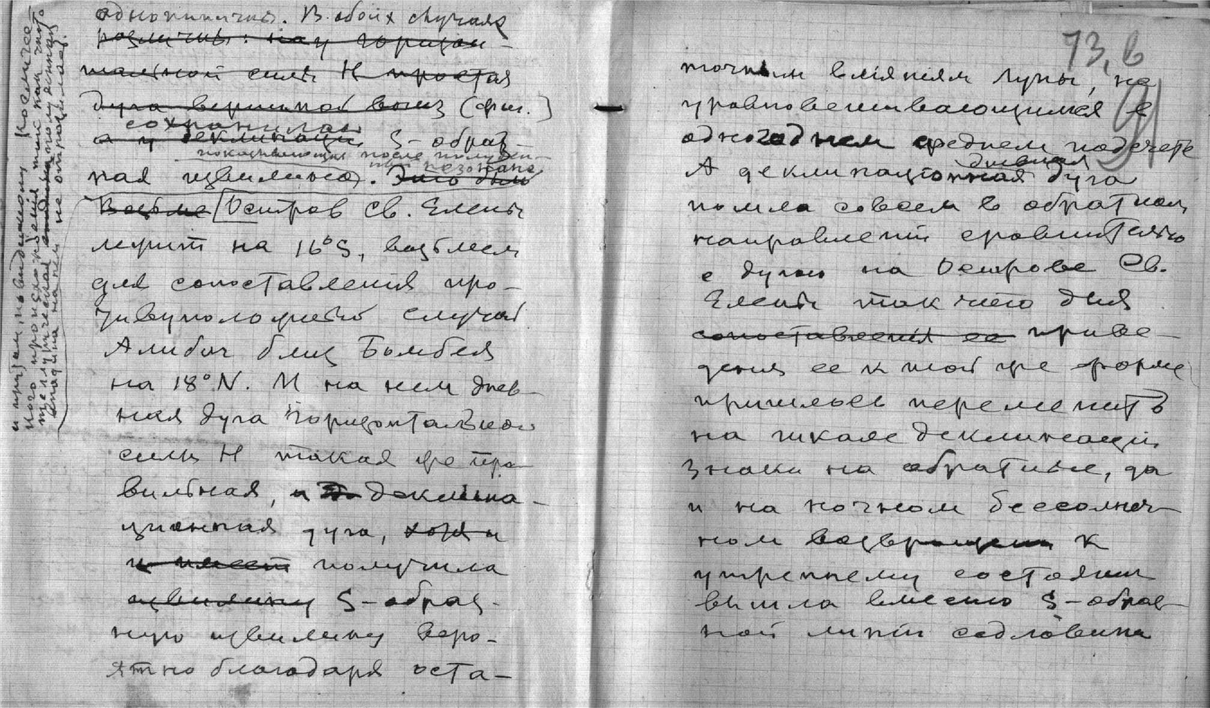 однотипичны. В обоих случаях
различны: на у горизон-
тальной силы H простая
дуга вершиной вниз (фиг. )
сохранилась
а у деклинации S-образ-
показывающая после полуден-
ная извилина. Это было
Возьме Остров Св. Елены
лежит на 16°S, возьмем
для сопоставления про-
тивуположный случай
Алибаг близ Бомбея
на 18°N. И на нем днев-
ная дуга Горизонтальной
силы H такая же пра-
вильная, и деклина-
ционная дуга, хотя и
и имеет получила
извилину S-образ-
ную извилину веро-
ятно благодаря оста-
и притом, по видимому
73, в
91
точным влияниям Луны, не
уравновешивающимся в
одногоднем среднем подсчете
дневная
А деклинационная дуга
пошла совсем в обратном
направлении сравнительно
с дугою на Острове Св.
Елены так что для
сопоставления ее приве-
дения ее к той же форме
пришлось переменить
на шкале деклинаций
знаки на обратные, да
и на ночном бессолнеч-
ном возвращении к
утреннему состоянию
вышла вместо S-образ-
ной линии седловина